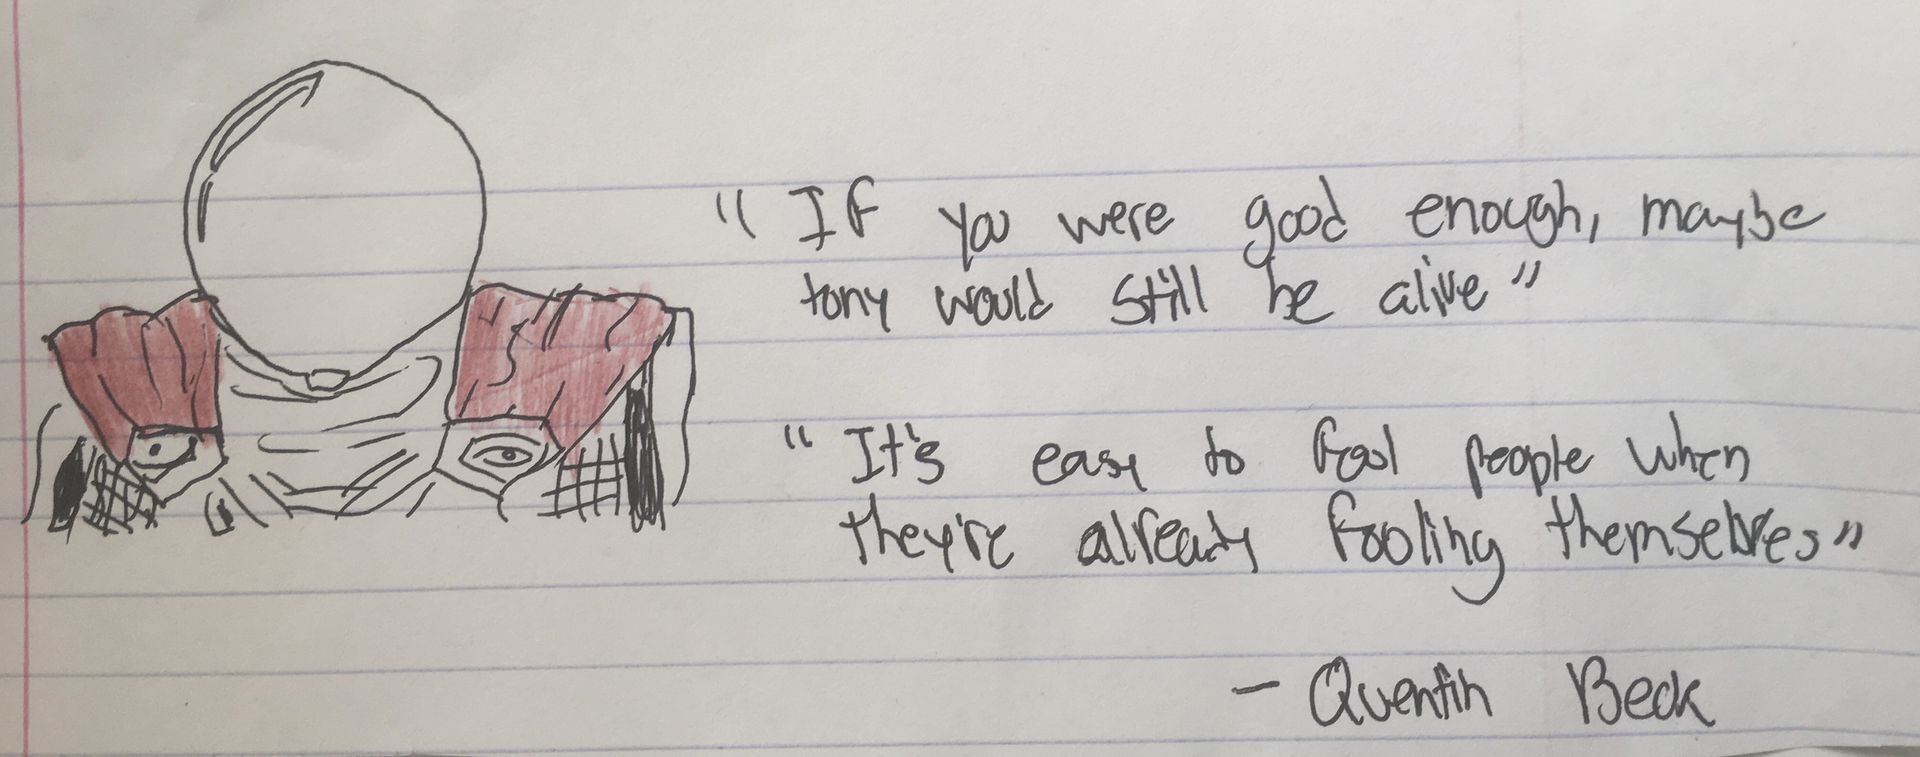 "If you were good enough, maybe
tony would still be alive"
"It's easy to fool people when
they're already fooling themselves"
- Quentin Beck